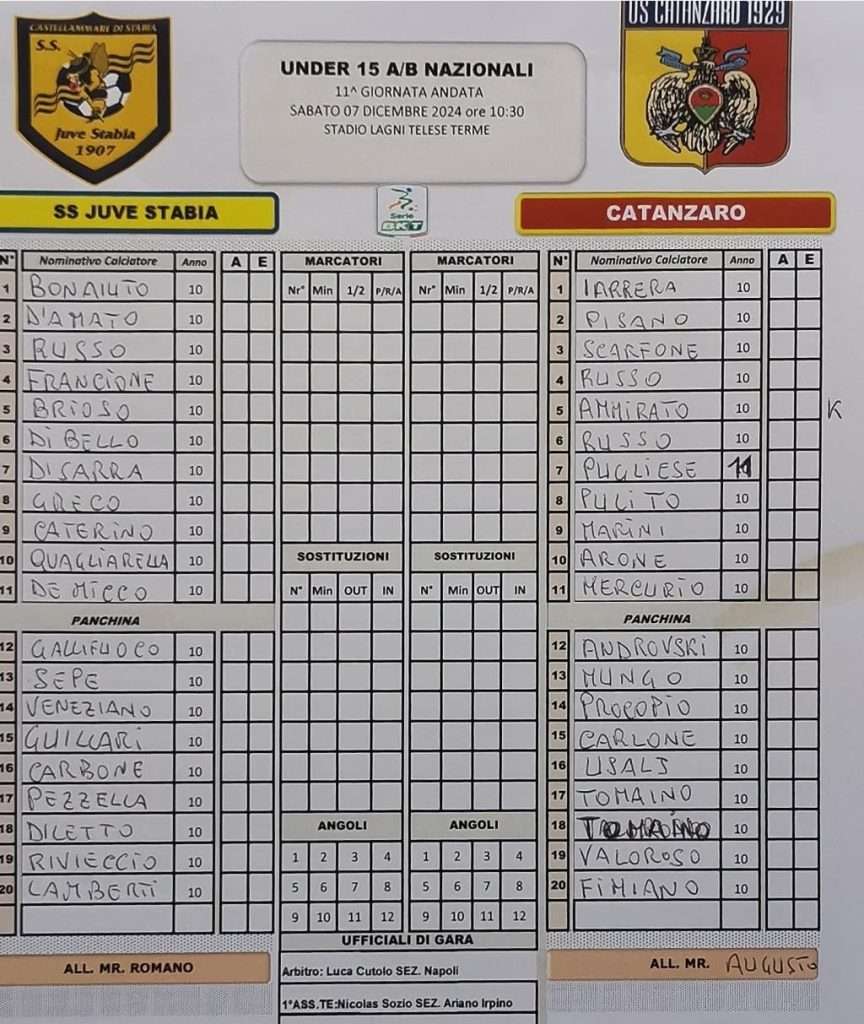 CASTELLAMMARE DI STABIA
S.S.
Juve Stabia
1907
US CATANZARO 1929
UNDER 15 A/B NAZIONALI
11^ GIORNATA ANDATA
SABATO 07 DICEMBRE 2024 ore 10:30
STADIO LAGNI TELESE TERME
SS JUVE STABIA
Serie
BKT
CATANZARO
N° Nominativo Calciatore Anno A E
1 BONAIUTO 10
2 D'AMATO 10
3 RUSSO 10
4 FRANCIONE 10
5 BRIOSO 10
6 DI BELLO 10
7 DISARRA 10
8 GRECO 10
9 CATERINO 10
10 QUAGLIARELLA 10
11 DE MICCO 10
PANCHINA
12 GALLIFUOCO 10
13 SEPE 10
14 VENEZIANO 10
15 GUILLARI 10
16 CARBONE 10
17 PEZZELLA 10
18 DILETTO 10
19 RIVIECCIO 10
20 LAMBERTI 10
ALL. MR. ROMANO
MARCATORI MARCATORI
Nr° Min 1/2 P/R/A Nr° Min 1/2 P/R/A
SOSTITUZIONI SOSTITUZIONI
N° Min OUT IN N° Min OUT IN
ANGOLI ANGOLI
1 2 3 4 1 2 3 4
5 6 7 8 5 6 7 8
9 10 11 12 9 10 11 12
UFFICIALI DI GARA
Arbitro: Luca Cutolo SEZ. Napoli
1°ASS.TE:Nicolas Sozio SEZ. Ariano Irpino
N° Nominativo Calciatore Anno A E
1 IARRERA 10
2 PISANO 10
3 SCARFONE 10
4 RUSSO 10
5 AMMIRATO 10 K
6 RUSSO 10
7 PUGLIESE 11
8 PULITO 10
9 MARINI 10
10 ARONE 10
11 MERCURIO 10
PANCHINA
12 ANDROVSKI 10
13 MUNGO 10
14 PROCOPIO 10
15 CARLONE 10
16 USALJ 10
17 TOMAINO 10
18 10
19 VALOROSO 10
20 FIMIANO 10
ALL. MR. AUGUSTO